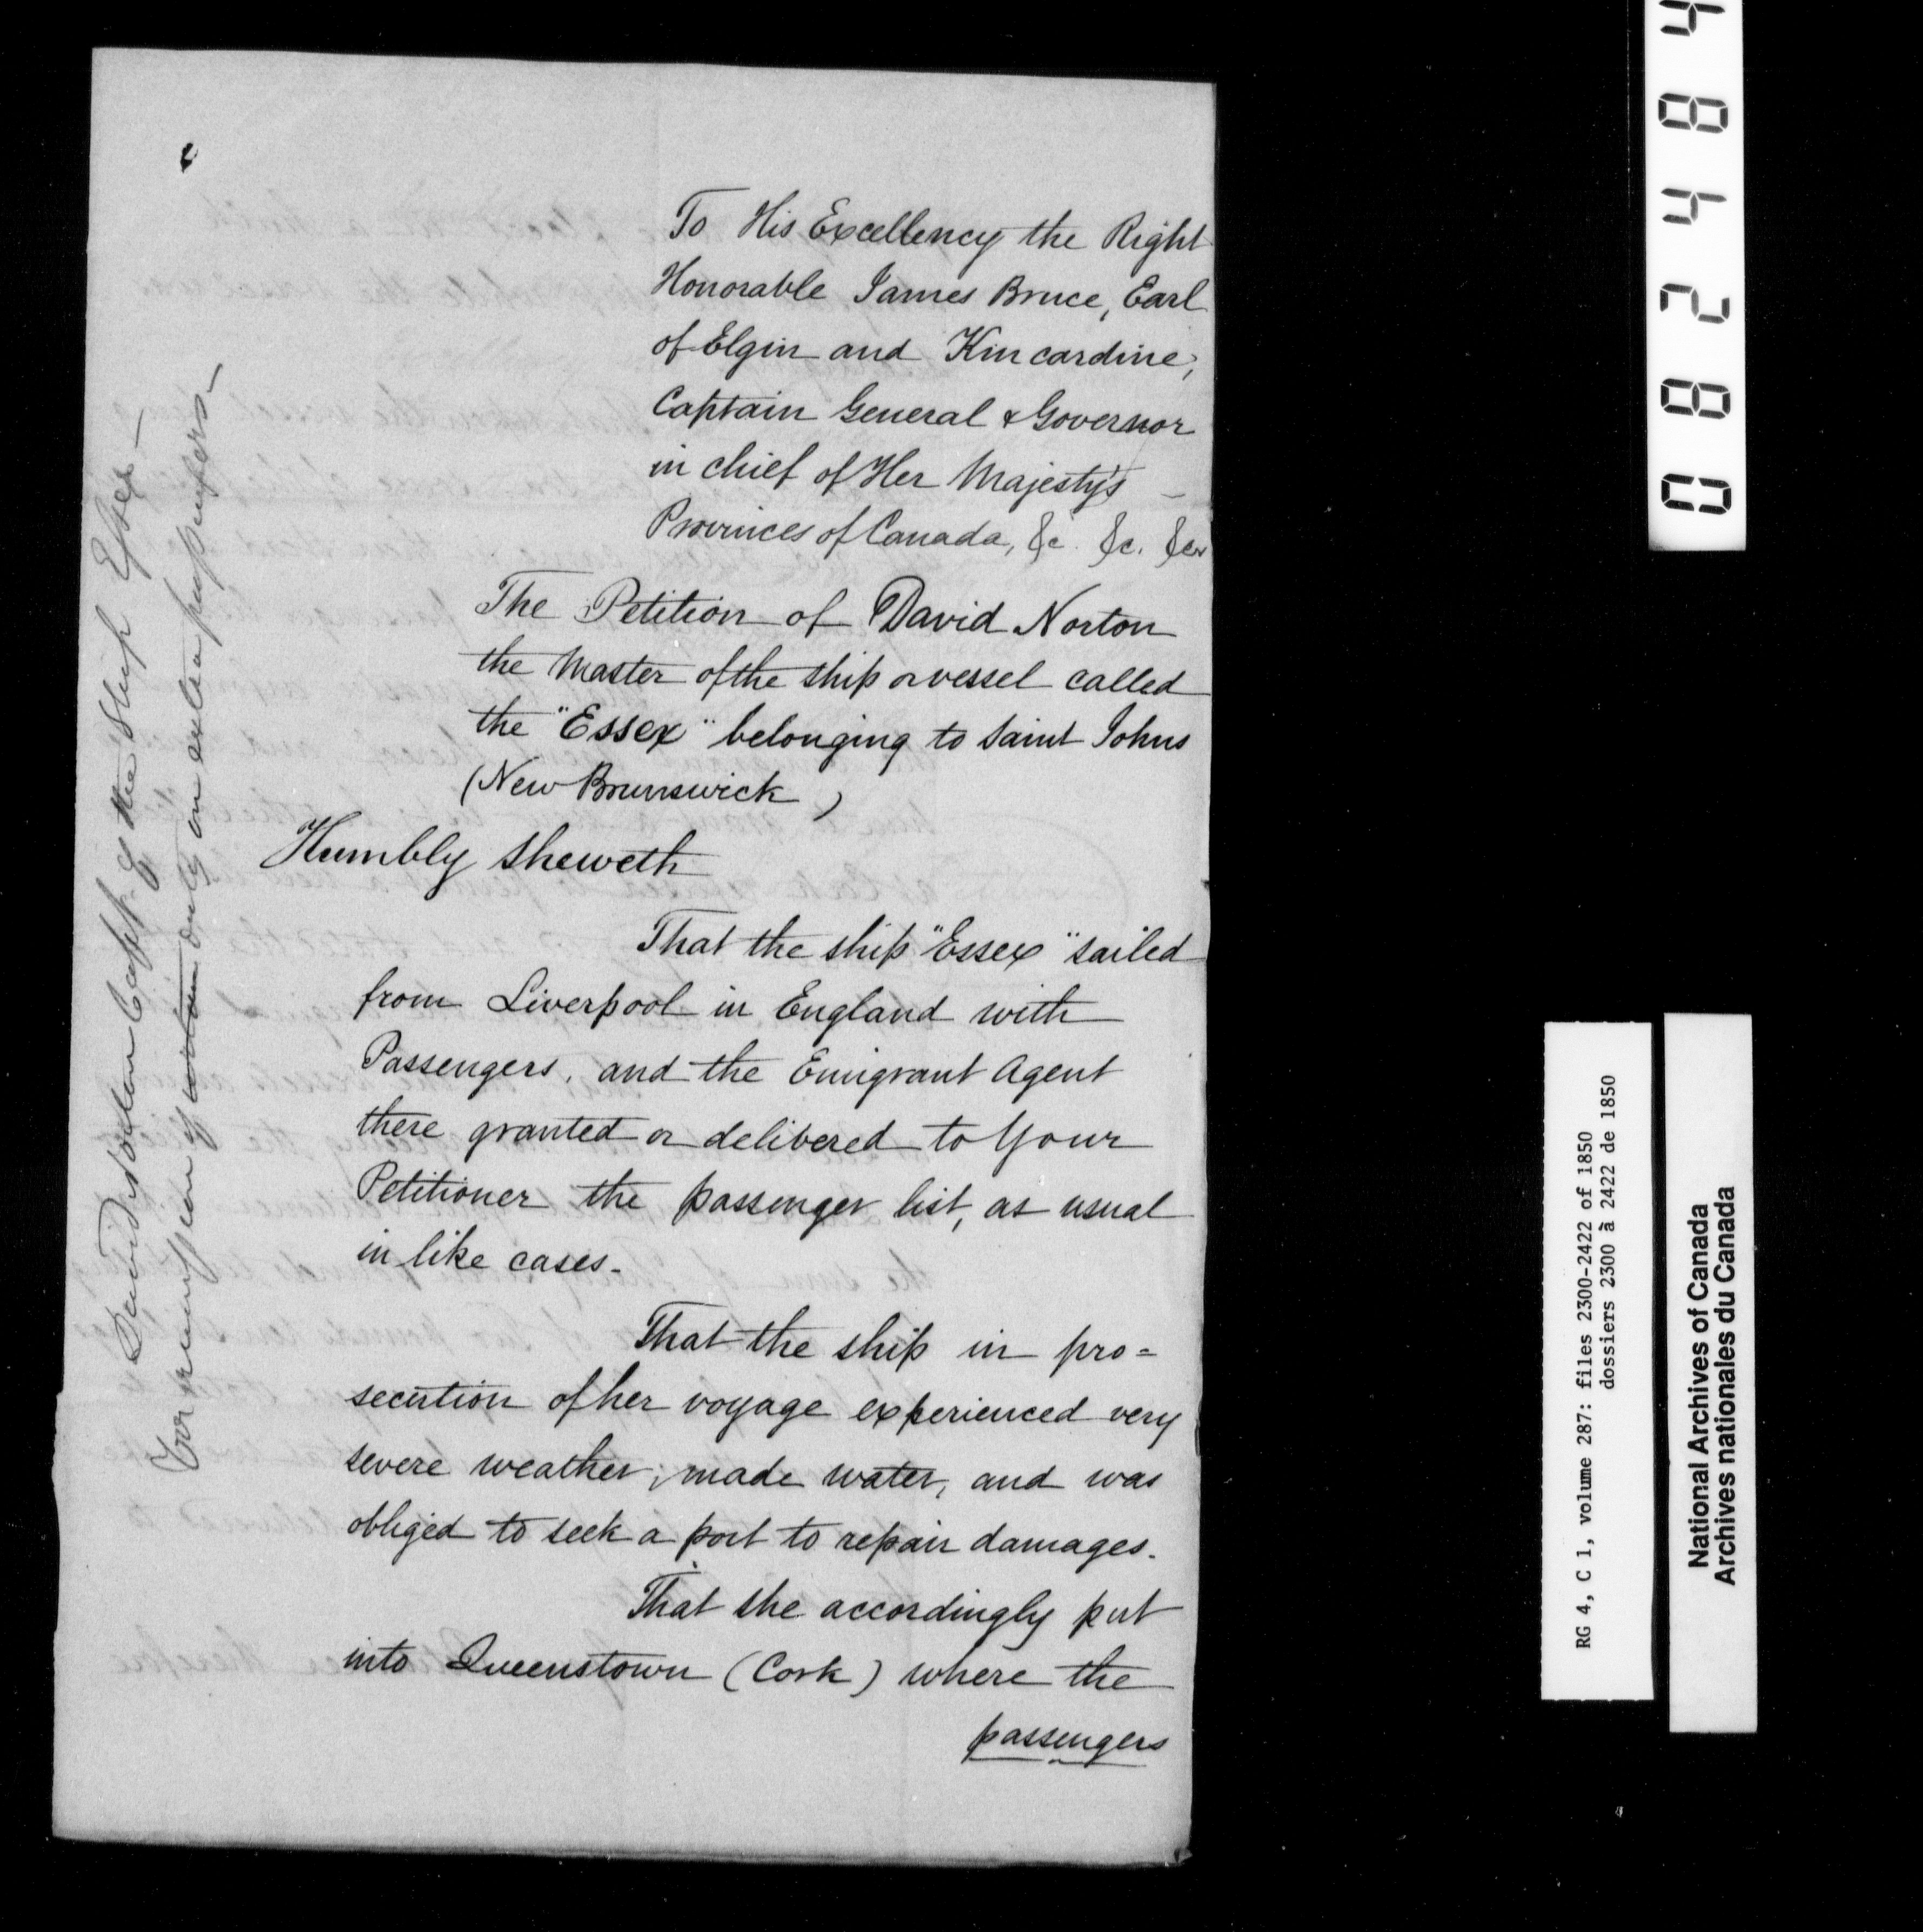 To His Excellency the Right
Honorable James Bruce, Earl
of Elgin and Kincardine,
Captain General & Governor
in chief of Her Majesty's
Provinces of Canada, &c. &c. &c
The Petition of David Norton
the Master of the ship or vessel called
the "Essex" belonging to Saint Johns
(New Brunswick)
Humbly Sheweth
That the ship "Essex" sailed
from Liverpool in England with
Passengers, and the Emigrant Agent
there granted or delivered to Your
Petitioner the passenger list, as usual
in like cases.
That the ship in pro=
secution of her voyage experienced very
severe weather, made water, and was
obliged to seek a port to repair damages.
That she accordingly put
into Queenstown (Cork) where the
passengers
David Norton Capt. of the Ship Essex—
For remission of certain duty on extra passengers—
082484
RG 4, C 1, volume 287: files 2300-2422 of 1850
dossiers 2300 à 2422 de 1850
National Archives of Canada
Archives nationales du Canada